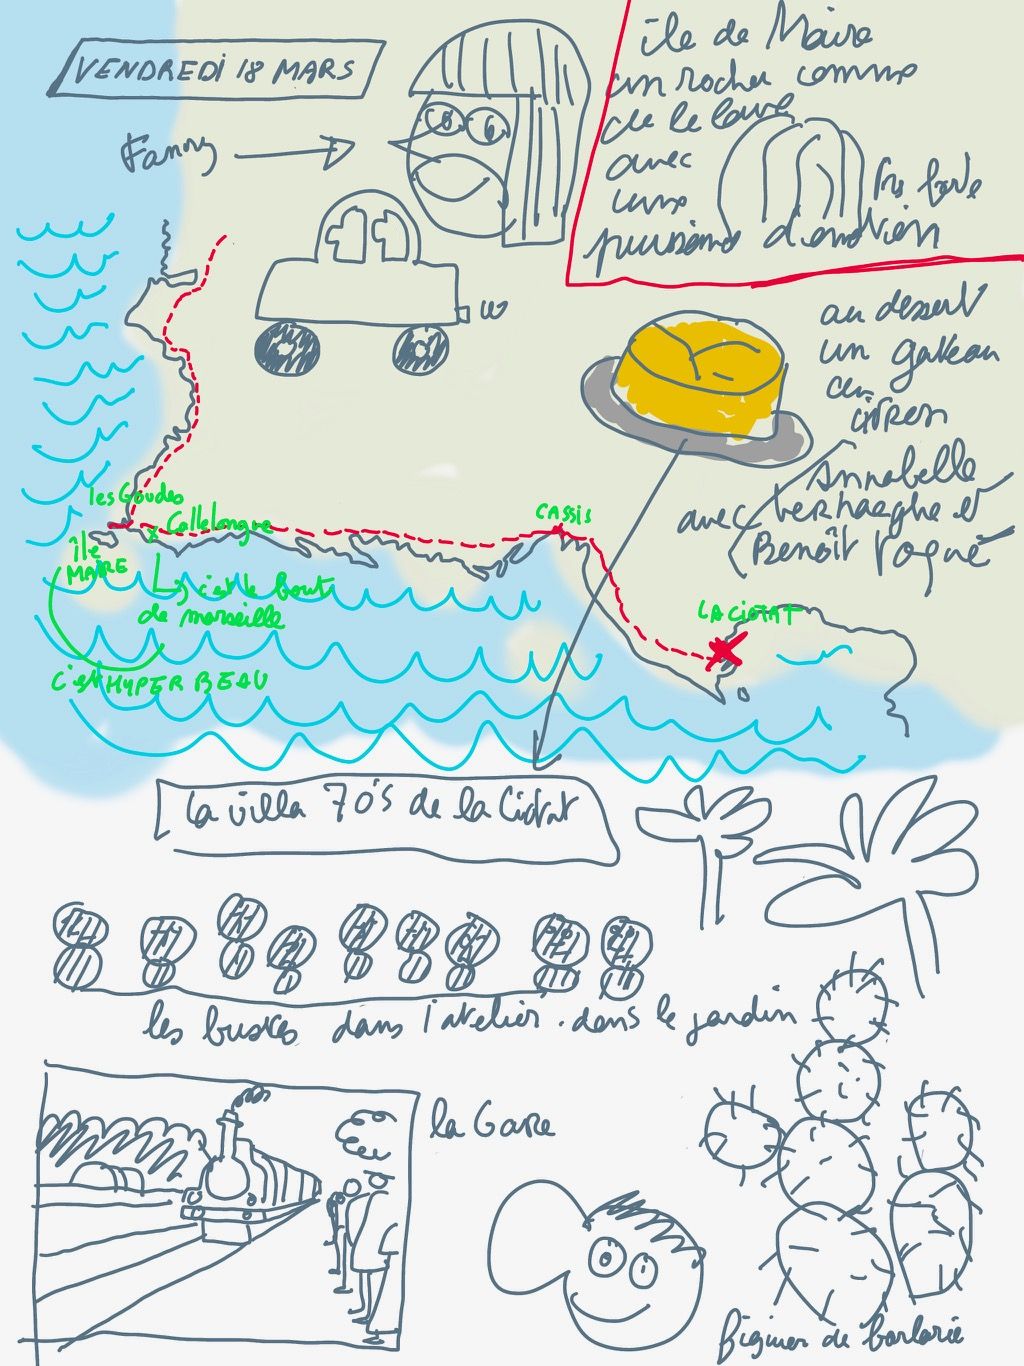 VENDREDI 18 MARS
Fanny
île de Maire
un rocher comme
de la lave
avec
une
très forte
puissance d'émotion
au dessert
un gateau
au
citron
avec
Annabelle
Verhaeghe et
Benoît
les Goudes
Callelongue
île
MAIRE
c'est le bout
de marseille
c'est HYPER BEAU
CASSIS
LA CIOTAT
La villa 70's de la Ciotat
les bustes dans l'atelier. dans le jardin
la Gare
figuier de barbarie